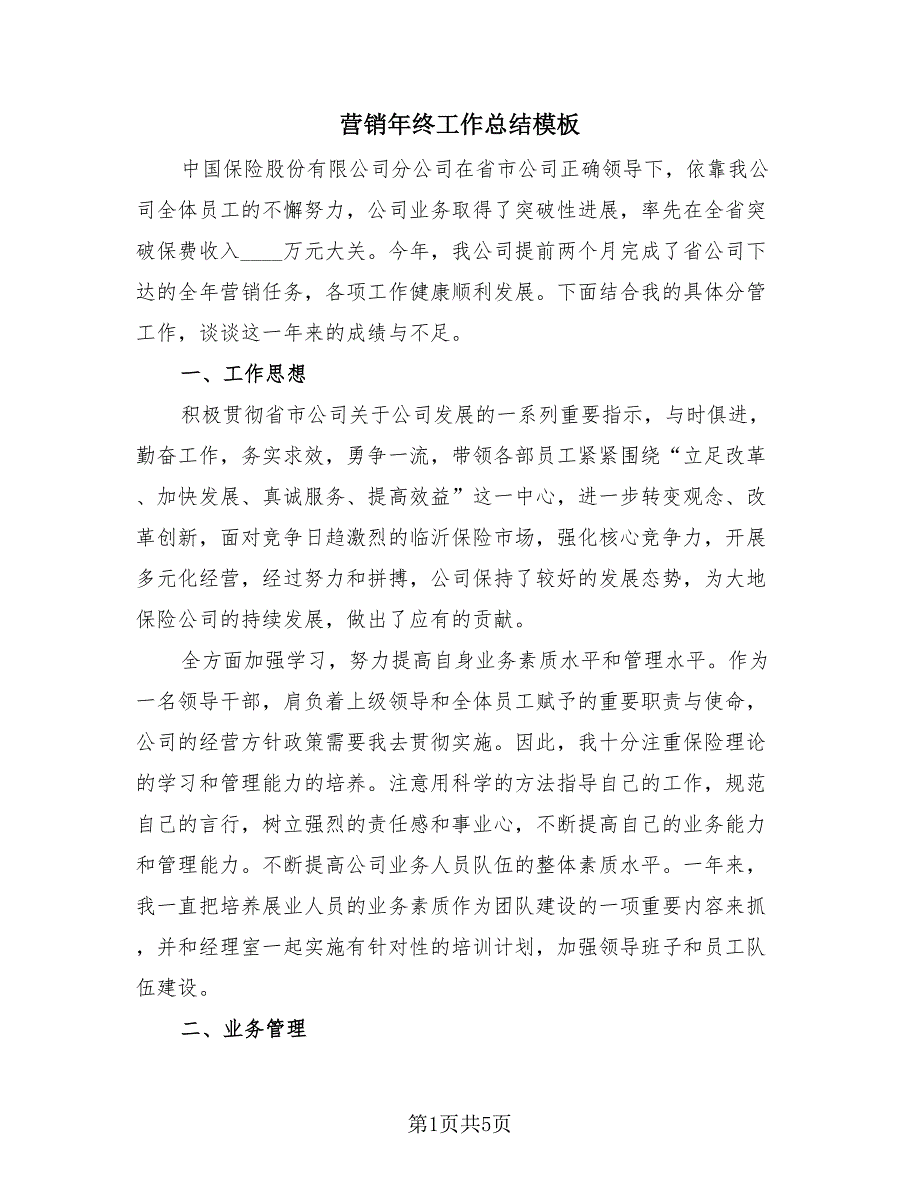 营销年终工作总结模板
中国保险股份有限公司分公司在省市公司正确领导下，依靠我公
司全体员工的不懈努力，公司业务取得了突破性进展，率先在全省突
破保费收入____万元大关。今年，我公司提前两个月完成了省公司下
达的全年营销任务，各项工作健康顺利发展。下面结合我的具体分管
工作，谈谈这一年来的成绩与不足。
一、工作思想
积极贯彻省市公司关于公司发展的一系列重要指示，与时俱进，
勤奋工作，务实求效，勇争一流，带领各部员工紧紧围绕“立足改革
、加快发展、真诚服务、提高效益”这一中心，进一步转变观念、改
革创新，面对竞争日趋激烈的临沂保险市场，强化核心竞争力，开展
多元化经营，经过努力和拼搏，公司保持了较好的发展态势，为大地
保险公司的持续发展，做出了应有的贡献。
全方面加强学习，努力提高自身业务素质水平和管理水平。作为
一名领导干部，肩负着上级领导和全体员工赋予的重要职责与使命，
公司的经营方针政策需要我去贯彻实施。因此，我十分注重保险理论
的学习和管理能力的培养。注意用科学的方法指导自己的工作，规范
自己的言行，树立强烈的责任感和事业心，不断提高自己的业务能力
和管理能力。不断提高公司业务人员队伍的整体素质水平。一年来，
我一直把培养展业人员的业务素质作为团队建设的一项重要内容来抓
，并和经理室一起实施有针对性的培训计划，加强领导班子和员工队
伍建设。
二、业务管理
第1页共5页